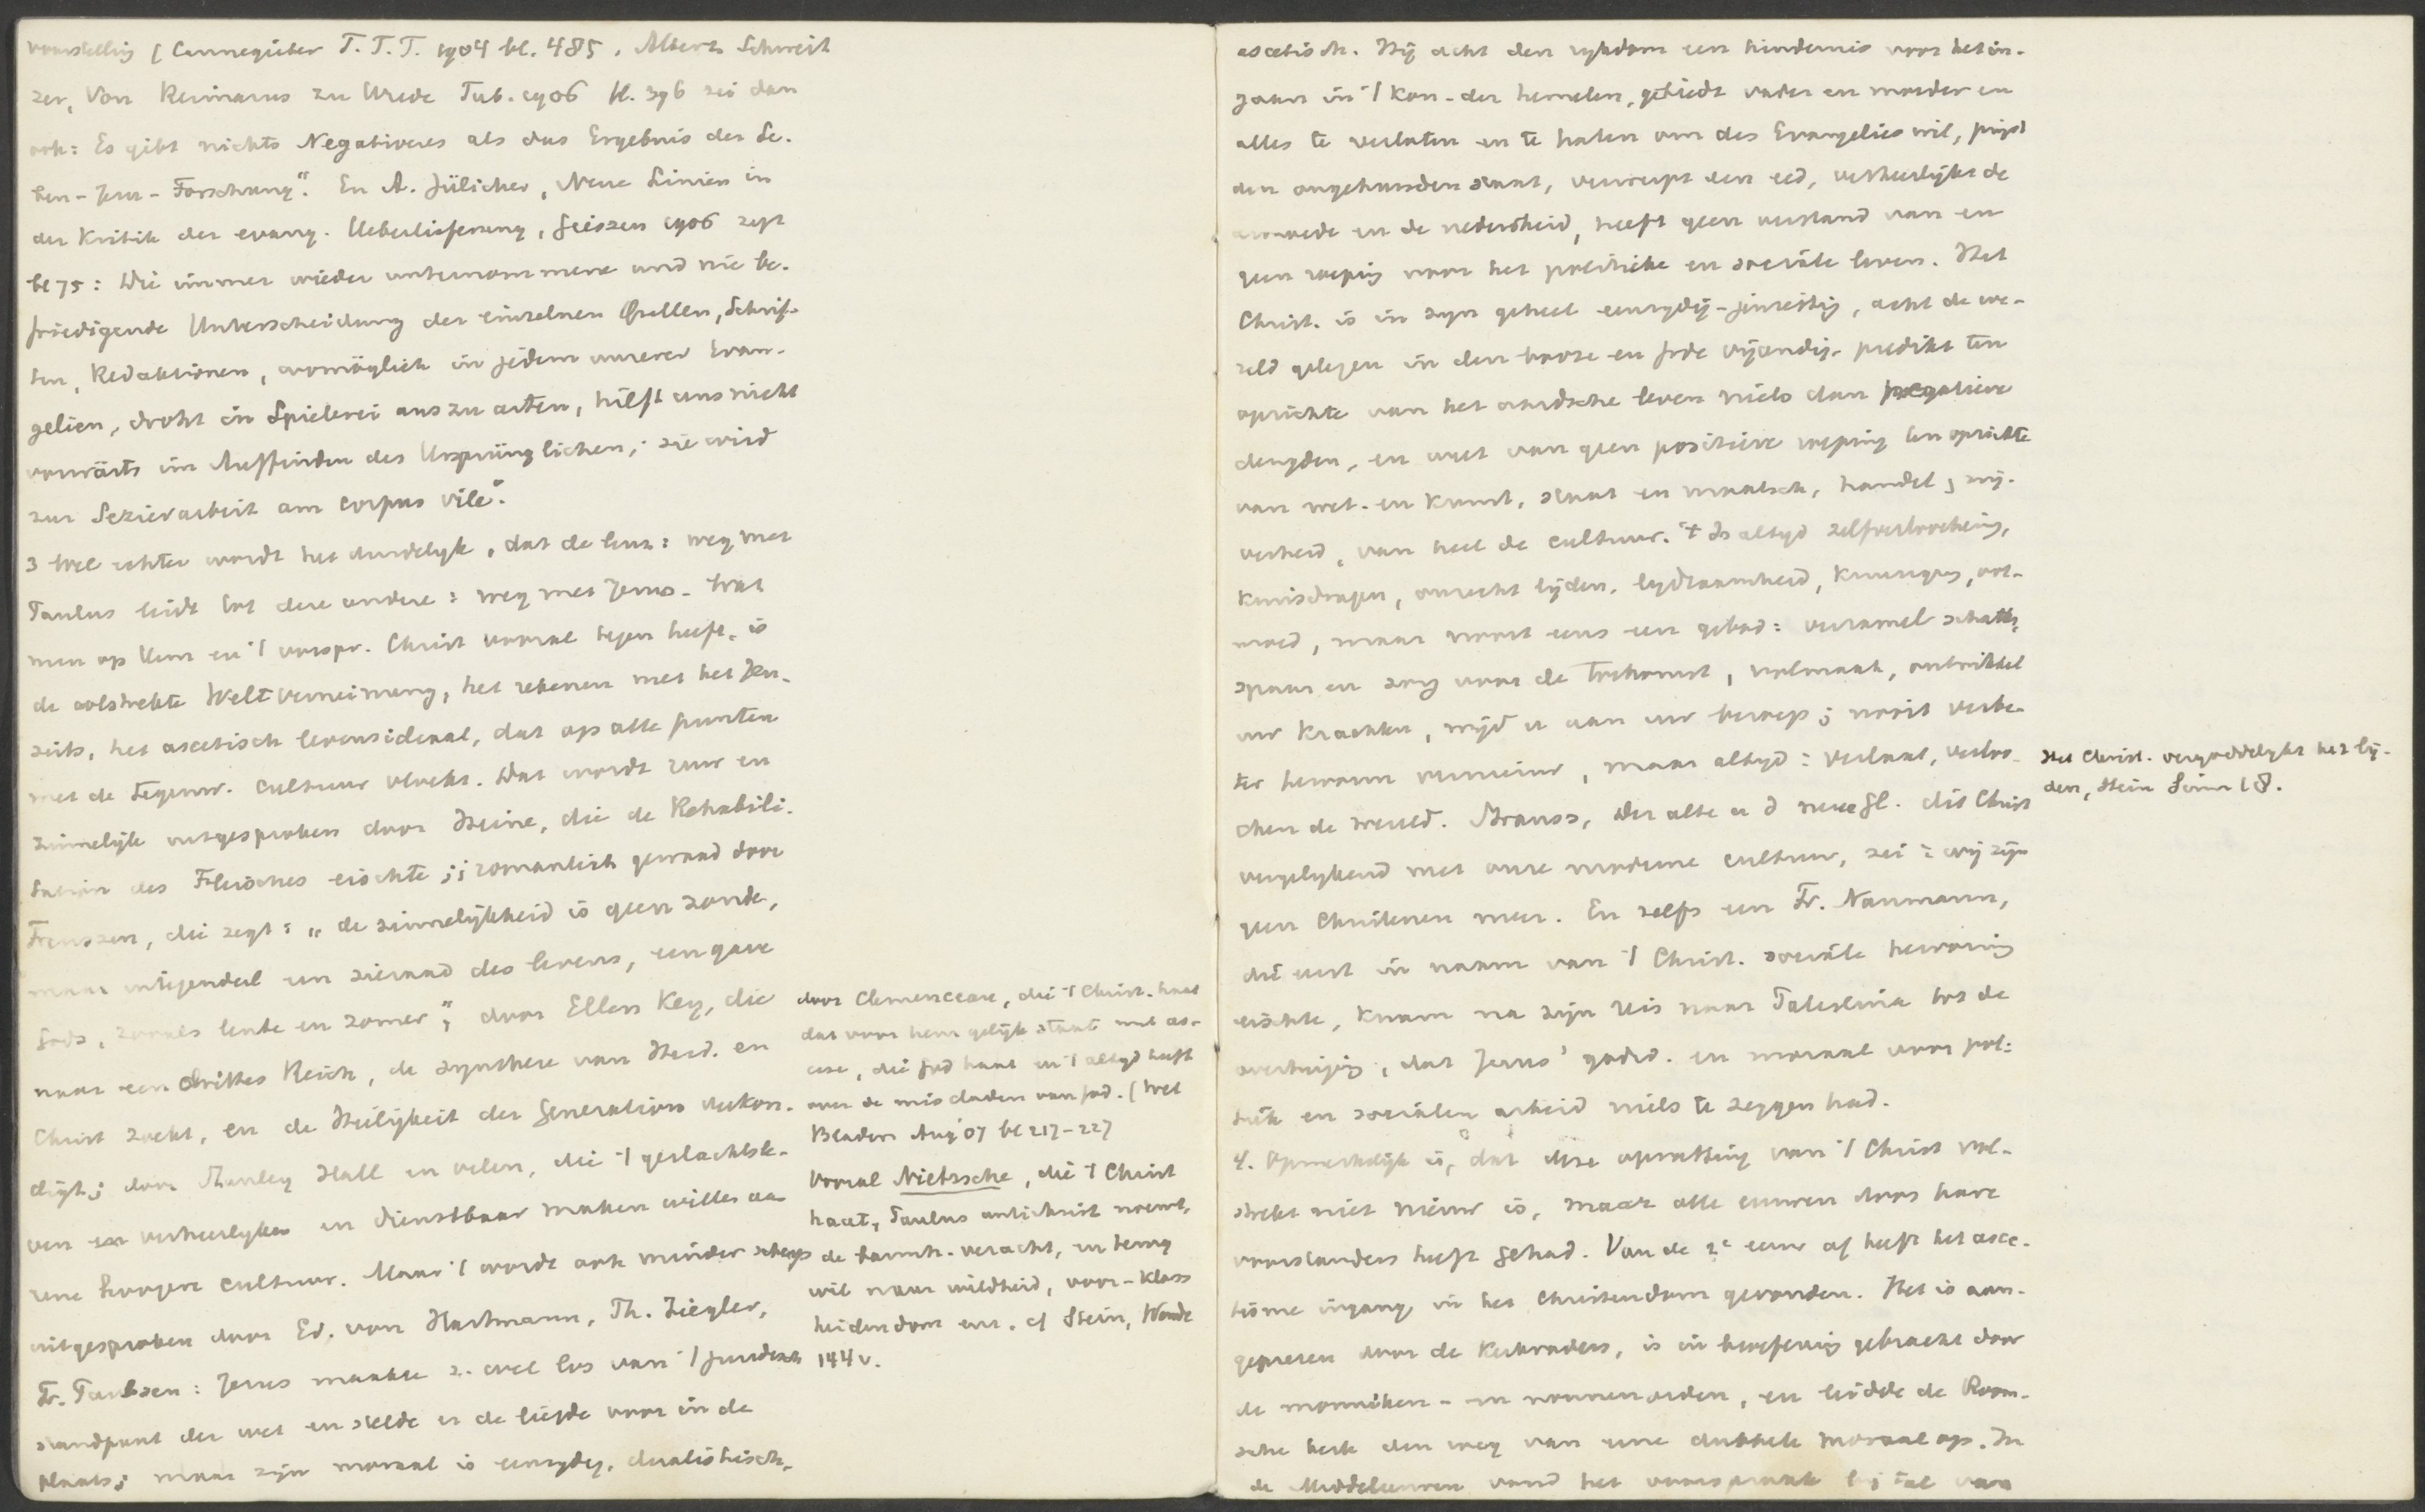 voorstelling (Cannegieter T.T.T. 1904 bl. 485. Albert Schweit
zer, Von Reimarus zu Wrede Tub. 1906 bl. 396 zei dan
ook: Es gibt nichts Negativeres als das Ergebnis der Le-
ben-Jesu-Forschung". En A. Jülicher, Neue Linien in
der Kritik der evang. Ueberlieferung, Gieszen 1906 zegt
bl 75: Die immer wieder unternommene und nie be-
friedigende Unterscheidung der einzelnen Quellen, Schrif-
ten, Redaktionen, womöglich in jedem unserer Evan-
gelien, droht in Spielerei auszuarten, hilft uns nicht
vorwärts im Auffinden des Ursprünglichen; sie wird
zur Sezierarbeit am corpus vile".
3 Wel echter wordt het duidelyk, dat de leuz: weg met
Paulus leidt tot deze andere: weg met Jezus. Wat
men op Hem en 't oorspr. Christ vooral tegen heeft, is
de volstrekte Weltverneinung, het rekenen met het Jen-
seits, het ascetisch levensideaal, dat op alle punten
met de tegenw. cultuur vloekt. Dat wordt ruw en
zinnelyk uitgesproken door Heine, die de Rehabili-
tation des Fleisches eischte; romantisch gewaad door
Frenszen, die zegt: „de zinnelijkheid is geen zonde,
maar integendeel een sieraad des levens, een gave
Gods, zooals lente en zomer"; door Ellen Key, die
naar een drittes Reich, de synthese van Heid. en
Christ zoekt, en de Heiligkeit der Generation verkon-
digt; door Stanley Hall en velen, die 't geslachtsle-
ven verheerlyken en dienstbaar maken willen aan
eene hoogere cultuur. Maar 't wordt ook minder scherp
uitgesproken door Ed. von Hartmann, Th. Ziegler,
Fr. Paulsen: Jezus maakte z. wel los van 't juridisch
standpunt der wet en stelde er de liefde voor in de
plaats; maar zijn moraal is eenzydig, dualistisch,
door Clemenceau, die 't Christ. haat
dat voor hem gelijk staat met as-
cese, die God haat en 't altyd heeft
over de misdaden van God. (Wet
Bladen Aug '07 bl 217-227
Vooral Nietzsche, die 't Christ
haat, Paulus antichrist noemt,
de barmh. veracht, en terug
wil naar wildheid, voor-klass
heidendom enz. cf Stein, Wende
144 v.
ascetisch. Hij acht den rykdom een hindernis voor het in-
gaan in 't Kon. der hemelen, gebiedt vader en moeder en
alles te verlaten en te haten om des Evangelies wil, prijst
den ongehuwden staat, verwerpt een eed, verheerlijkt de
armoede en de nederigheid, heeft geen verstand van en
geen roeping voor het politieke en sociale leven. Het
Christ. is in zyn geheel eenzydig-jenseitig, acht de we-
reld gelegen in den booze en Gode vijandig, predikt ten
opzichte van het aardsche leven niets dan negatieve
deugden, en weet van geen positieve roeping ten opzichte
van wet. en kunst, staat en maatsch, handel, nij-
verheid, van heel de cultuur. 't Is altyd zelfverloochening,
kruisdragen, onrecht lijden, lydzaamheid, oot-
moed, maar nooit eens een gebod: verzamel schatten,
spaar en zorg voor de toekomst, volmaak, ontwikkel
uw krachten, wijd u aan uw beroep; nooit verbe-
ter maar altyd: verlaat, verloo-
chen de wereld. Strauss, der alte u d neue Gl. dit Christ
vergelykend met onze moderne cultuur, zei: wij zijn
geen Christenen meer. En zelfs een Fr. Naumann,
die eerst in naam van 't Christ. sociale hervorming
eischte, kwam na zijn reis naar Palestina tot de
overtuiging, dat Jezus' godsd. en moraal voor poli-
tiek en socialen arbeid niets te zeggen had.
4. Opmerkelijk is, dat deze opvatting van 't Christ vol-
strekt niet nieuw is, maar alle eeuwen door hare
voorstanders heeft gehad. Van de 2e eeuw af heeft het asce-
tisme ingang in het Christendom gevonden. Het is aan-
geprezen door de Kerkvaders, is in beoefening gebracht door
de monniken- en nonnenorden, en leidde de Room-
sche kerk den weg van eene dubbele moraal op. In
de Middeleeuwen vond het voorspraak bij tal van
Het Christ. vergoddelykt het lij-
den, Stein Sinn 18.